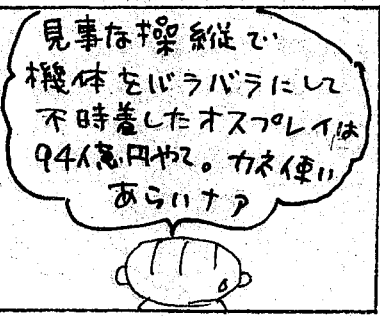 見事な操縦で
機体をバラバラにして
不時着したオスプレイは
94億円やて。カネ使い
あらいナァ